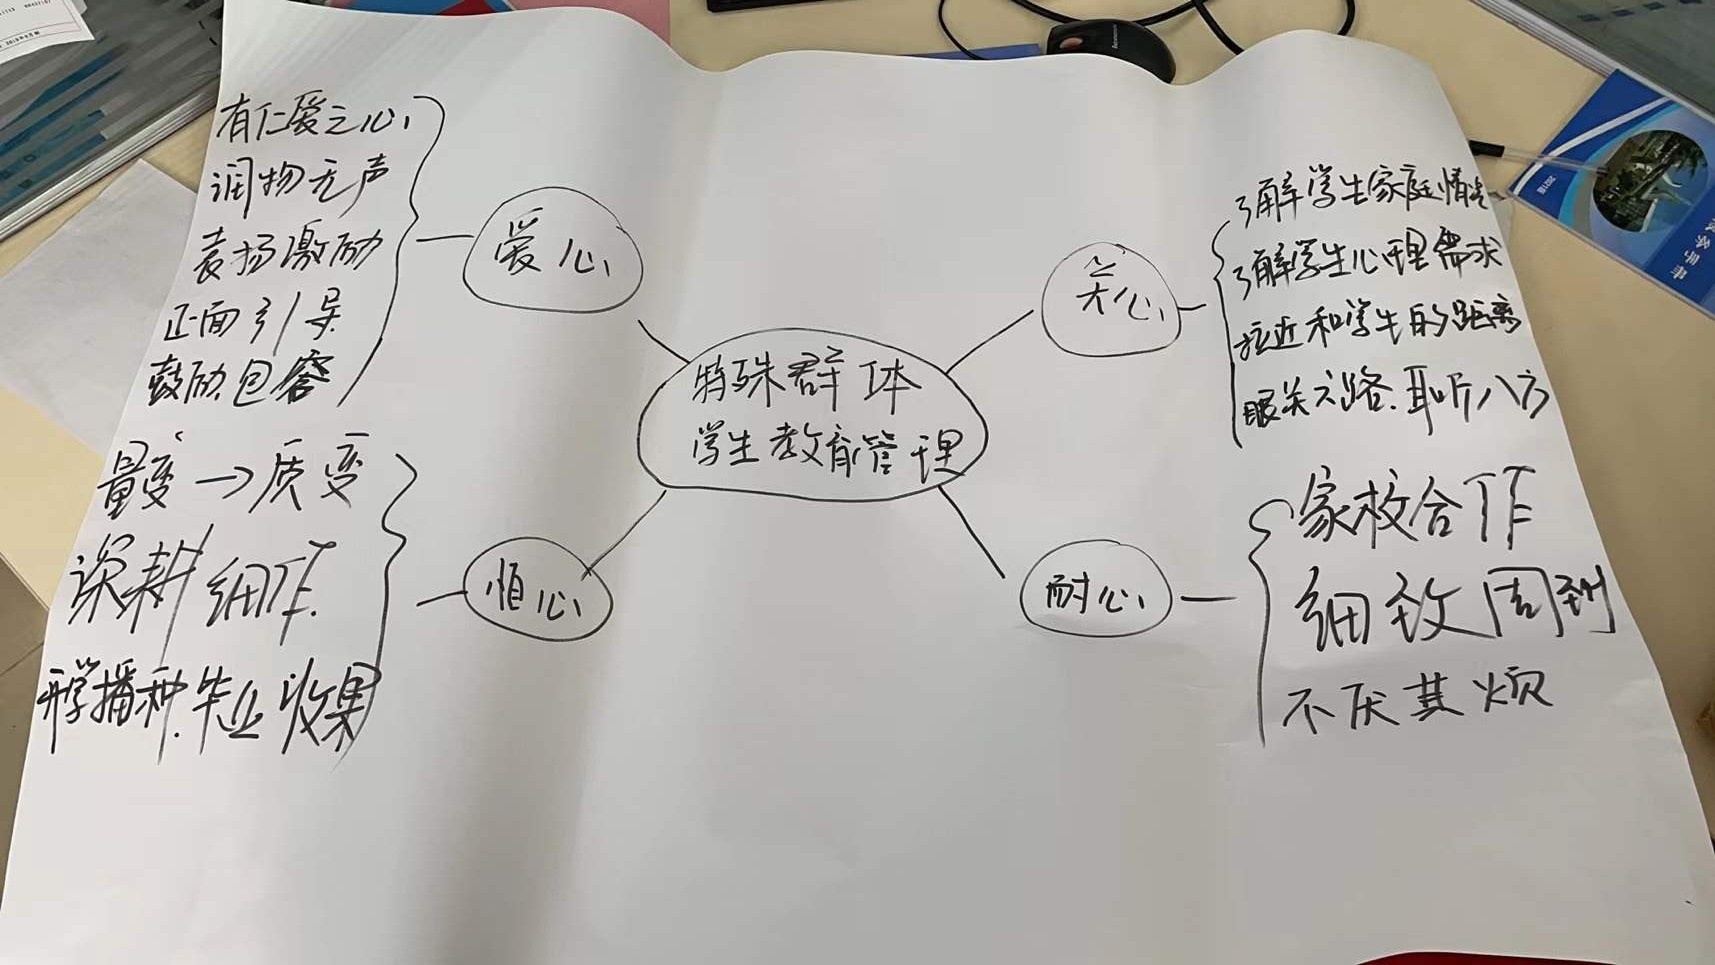 特殊群体
学生教育管理
爱心
有仁爱之心
润物无声
表扬激励
正面引导
鼓励包容
关心
了解学生家庭情况
了解学生心理需求
拉近和学生的距离
眼关六路.耳听八方
恒心
量变→质变
深耕细作.
开学播种.毕业收果
耐心
家校合作
细致周到
不厌其烦
lenovo